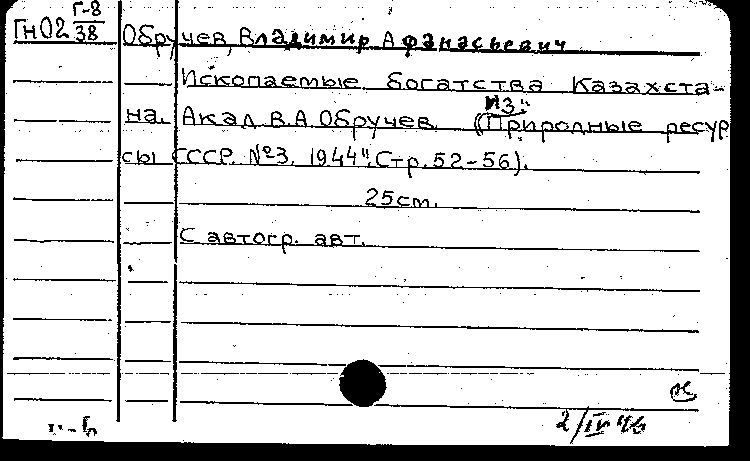 Гн02 Г-8/38
Обручев, Владимир Афанасьевич
Ископаемые богатства Казахста-
на. Акад. В.А. Обручев. (Из: "Природные ресур
сы СССР. №3. 1944". Стр. 52-56).
25см.
С автогр. авт.
2/IV 46